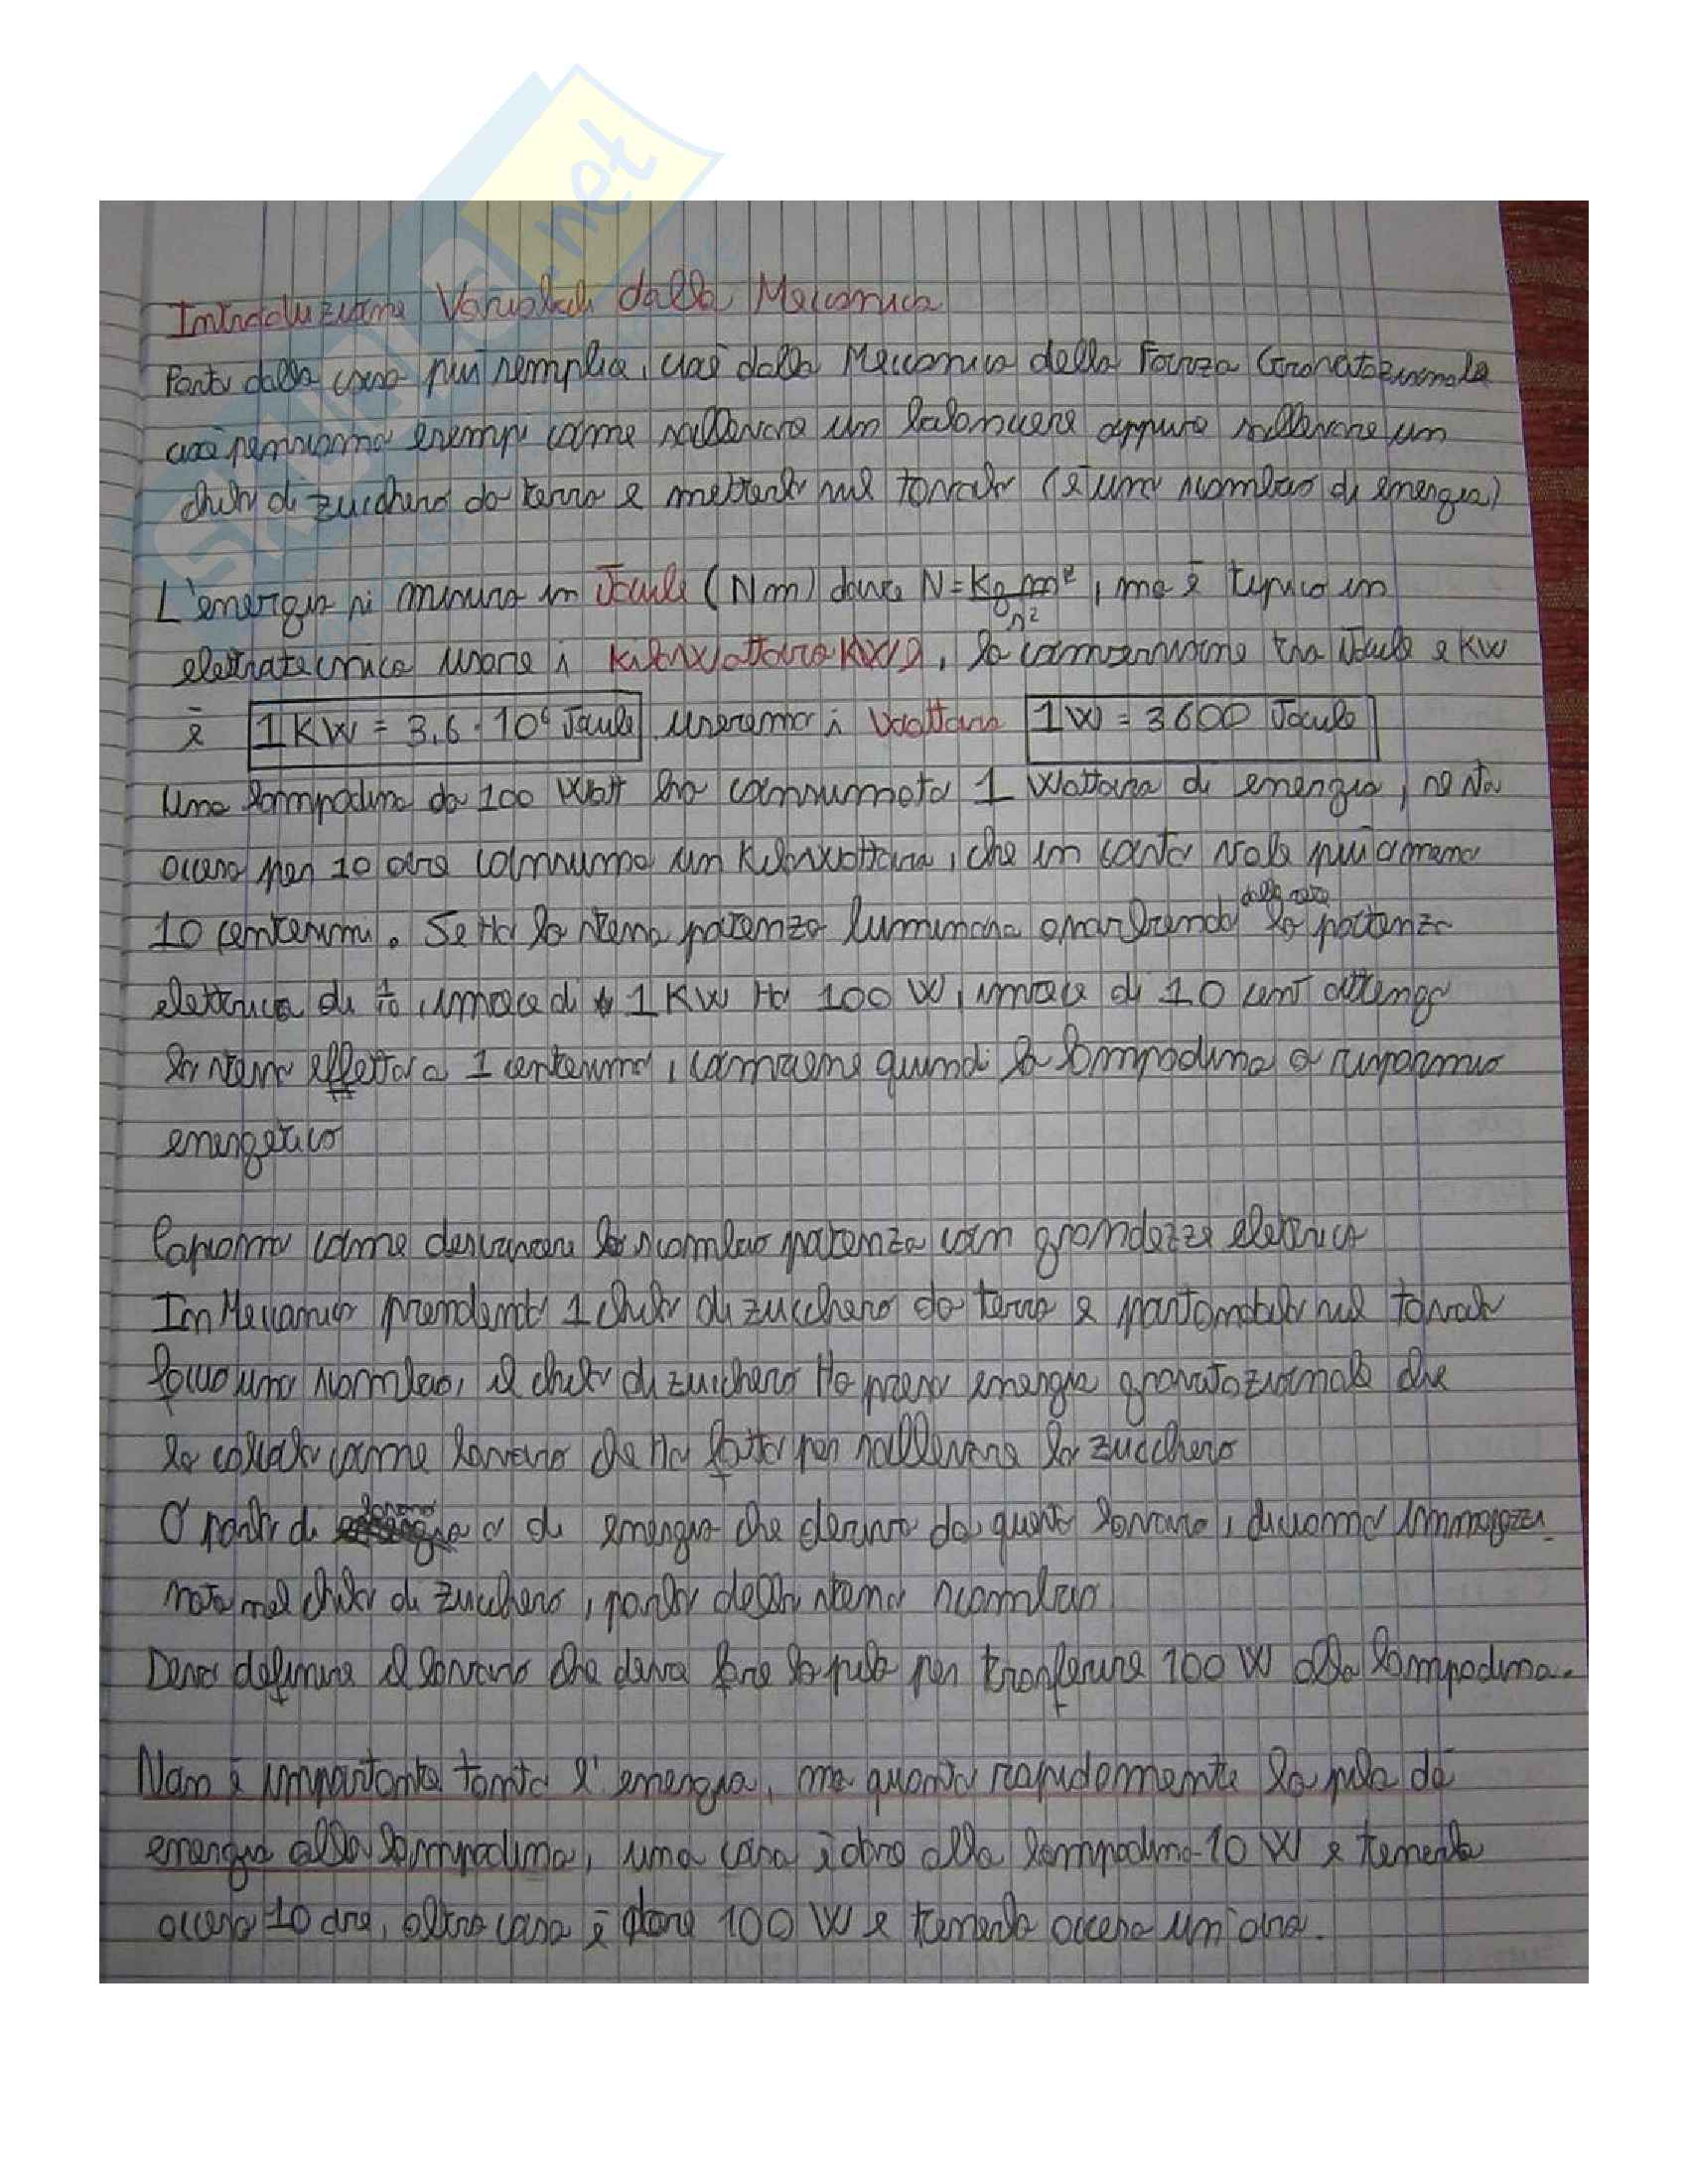 Introduzione Variabili dalla Meccanica
Parto dalla cosa più semplice, cioè dalla Meccanica della Forza Gravitazionale
cioè pensiamo esempi come sollevare un bilanciere oppure sollevare un
chilo di zucchero da terra e metterlo sul tavolo (è uno scambio di energia)
L'energia si misura in Joule (Nm) dove N = Kg m² / s², ma è tipico in
elettrotecnica usare i Kilowattora KW, la conversione tra Joule e KW
è 1 KW = 3,6 · 10⁶ Joule useremo i Wattora 1 W = 3600 Joule
Una lampadina da 100 Watt ha consumato 1 Wattora di energia, se sta
accesa per 10 ore consuma un Kilowattora, che in costo vale più o meno
10 centesimi. Se ho la stessa potenza luminosa assorbendo dalla rete la potenza
elettrica di 1/10 invece di 1 KW ho 100 W, invece di 10 cent ottengo
lo stesso effetto a 1 centesimo, conviene quindi la lampadina a risparmio
energetico
Capiamo come descrivere lo scambio potenza con grandezze elettrica
In Meccanica prendendo 1 chilo di zucchero da terra e portandolo sul tavolo
faccio uno scambio, il chilo di zucchero ha preso energia gravitazionale che
la calcolo come lavoro che ho fatto per sollevare lo zucchero
O parlo di lavoro o di energia che deriva da questo lavoro, diciamo immagazzi
nata nel chilo di zucchero, parlo dello stesso scambio
Devo definire il lavoro che deve fare la pila per trasferire 100 W alla lampadina.
Non è importante tanto l'energia, ma quanto rapidamente la pila dà
energia alla lampadina, una cosa è dare alla lampadina 10 W e tenerla
accesa 10 ore, altra cosa è dare 100 W e tenerla accesa un'ora.
Skuola.net